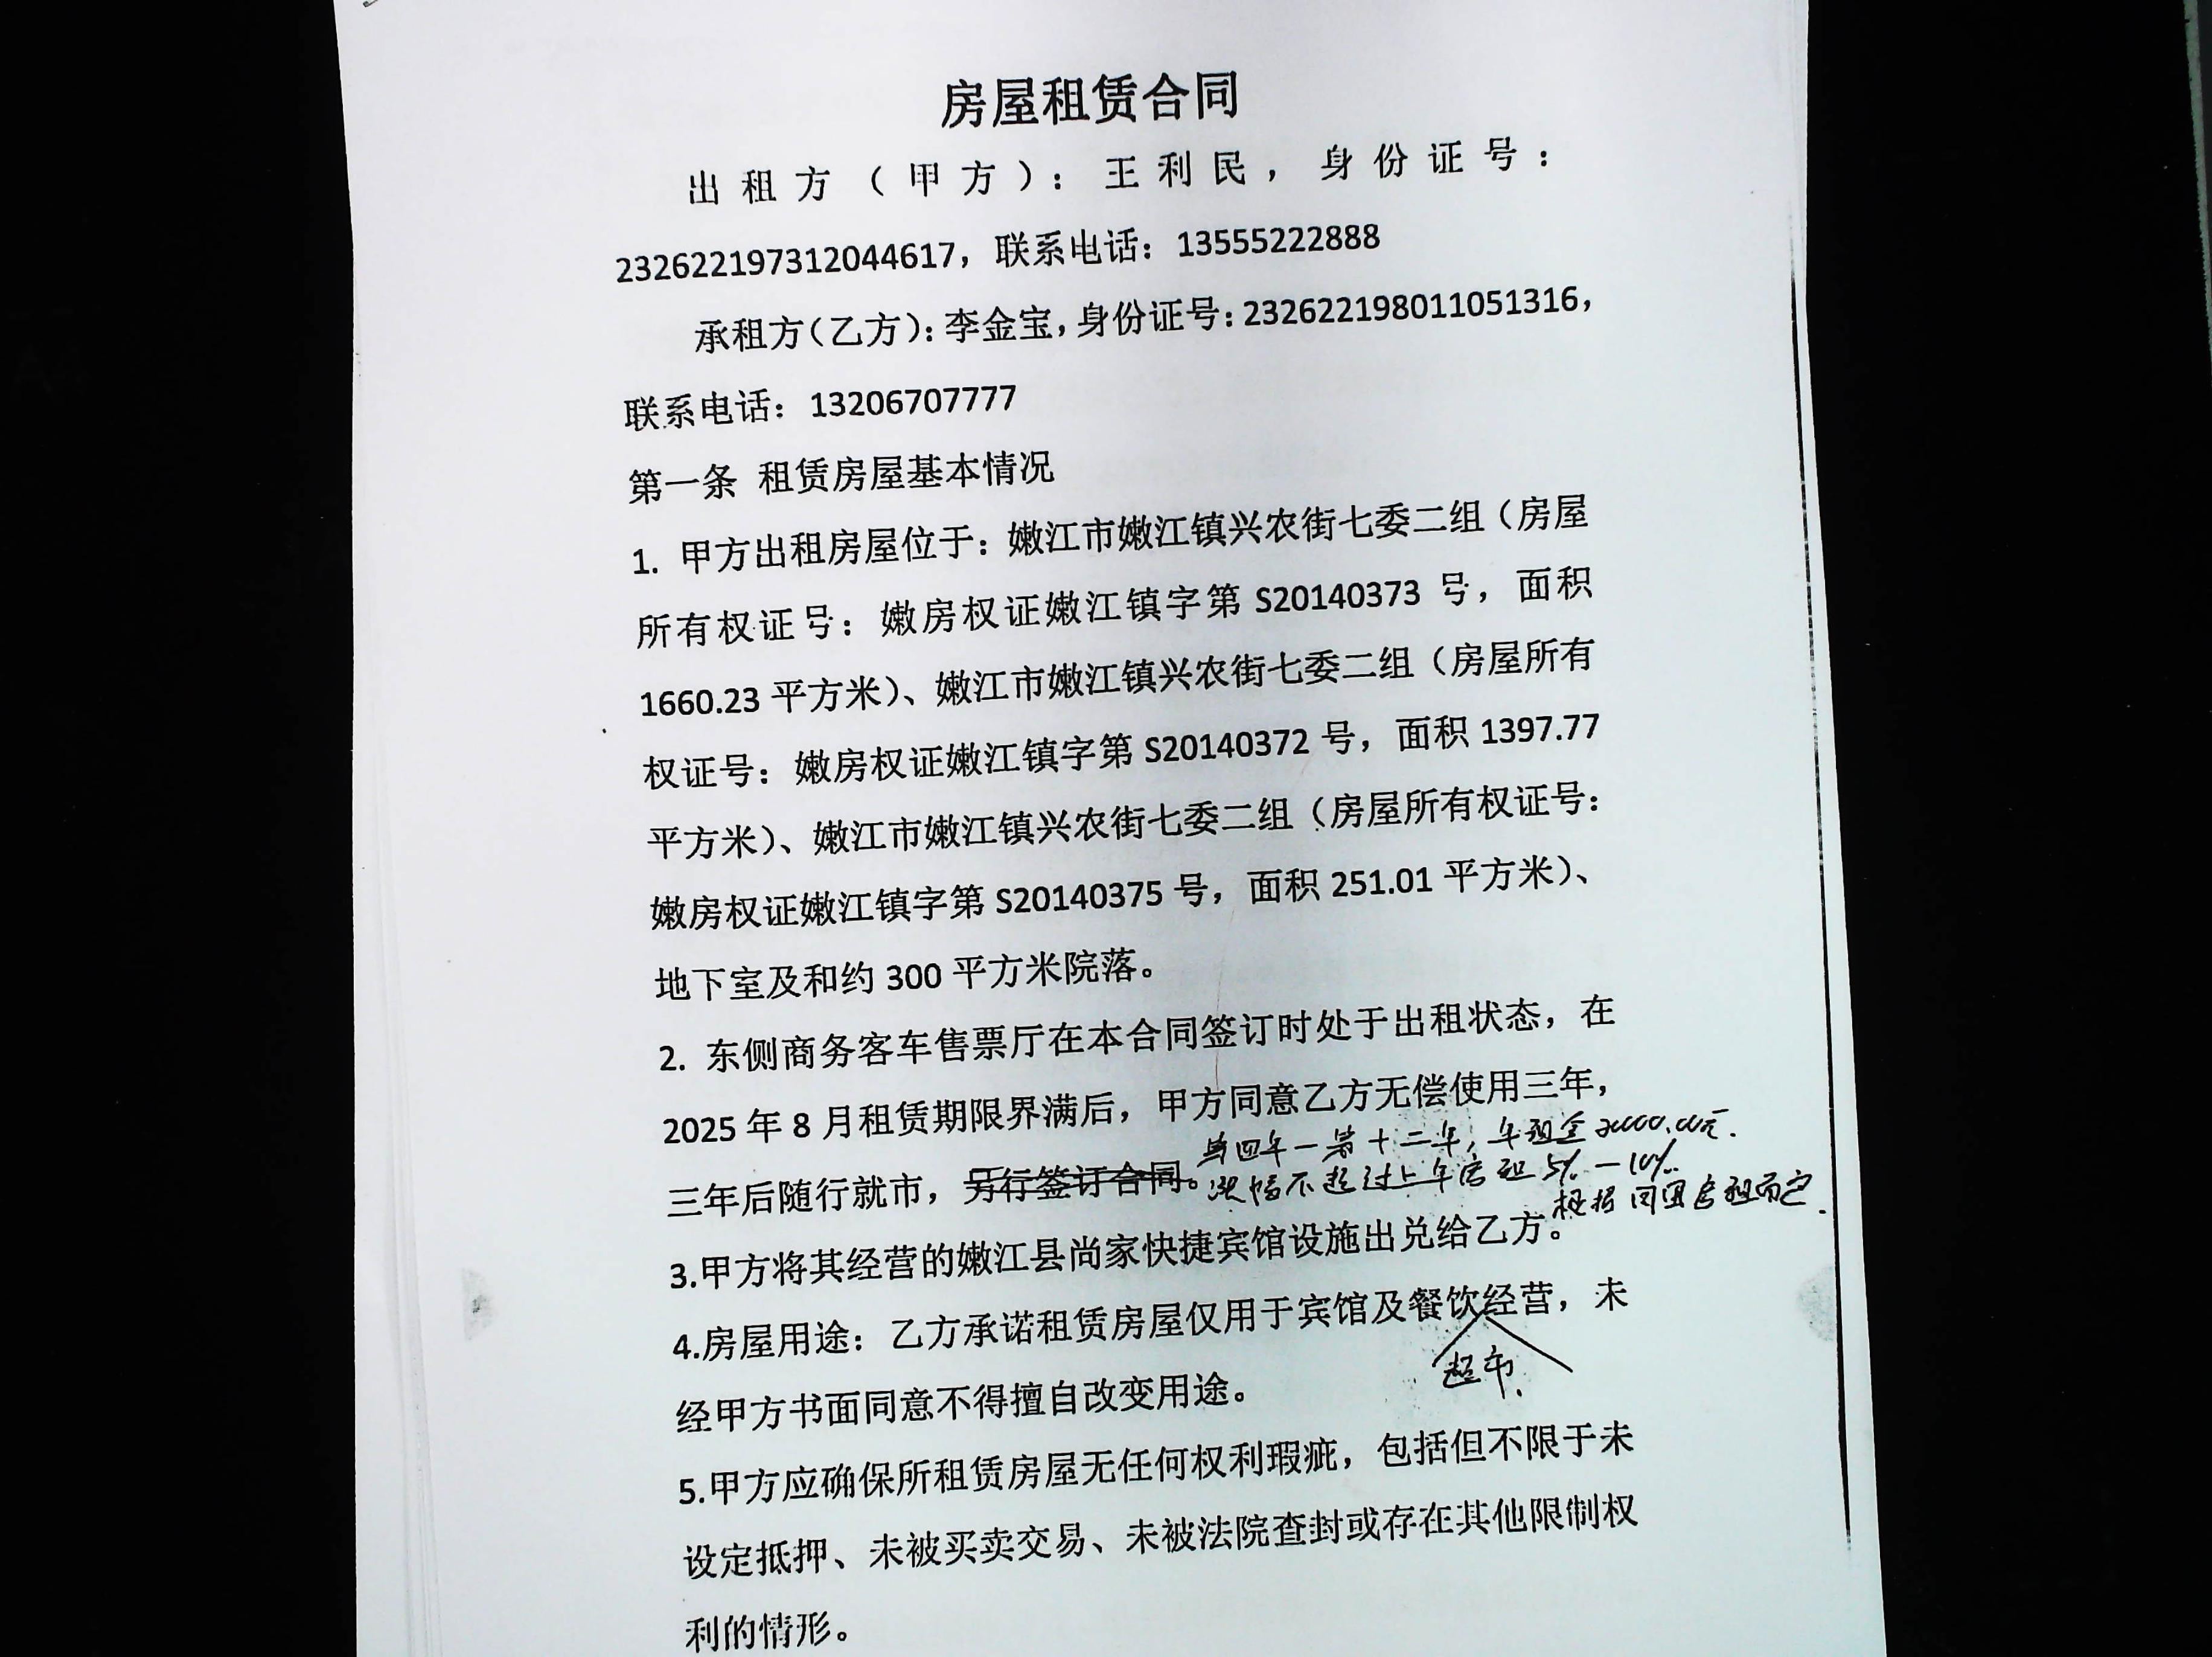 房屋租赁合同
出租方（甲方）：王利民，身份证号：
232622197312044617，联系电话：13555222888
承租方（乙方）：李金宝，身份证号：232622198011051316，
联系电话：13206707777
第一条 租赁房屋基本情况
1. 甲方出租房屋位于：嫩江市嫩江镇兴农街七委二组（房屋
所有权证号：嫩房权证嫩江镇字第 S20140373 号，面积
1660.23 平方米）、嫩江市嫩江镇兴农街七委二组（房屋所有
权证号：嫩房权证嫩江镇字第 S20140372 号，面积 1397.77
平方米）、嫩江市嫩江镇兴农街七委二组（房屋所有权证号：
嫩房权证嫩江镇字第 S20140375 号，面积 251.01 平方米）、
地下室及和约 300 平方米院落。
2. 东侧商务客车售票厅在本合同签订时处于出租状态，在
2025 年 8 月租赁期限界满后，甲方同意乙方无偿使用三年，
第四年一第十二年，年租金
三年后随行就市，另行签订合同。
涨幅不超过上年房租5%—10%.
根据周围房租而定.
3.甲方将其经营的嫩江县尚家快捷宾馆设施出兑给乙方。
4.房屋用途：乙方承诺租赁房屋仅用于宾馆及餐饮经营，未
超市.
经甲方书面同意不得擅自改变用途。
5.甲方应确保所租赁房屋无任何权利瑕疵，包括但不限于未
设定抵押、未被买卖交易、未被法院查封或存在其他限制权
利的情形。